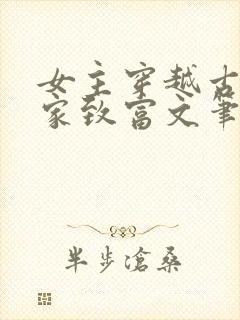 女主穿越古
家致富文笔
半步沧桑